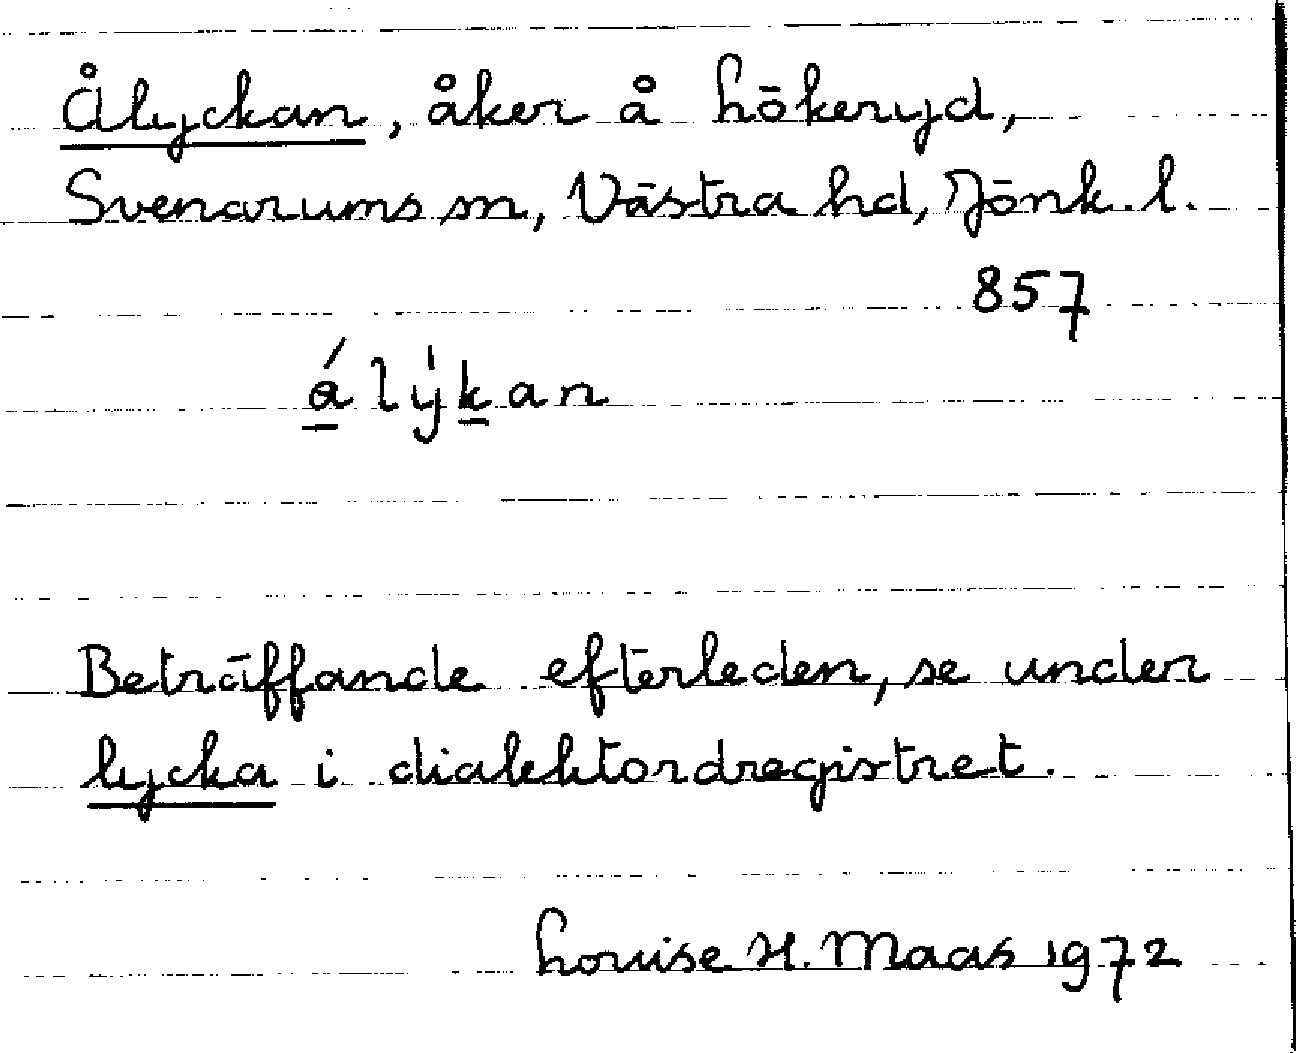 Ålyckan, åker å Lökeryd,
Svenarums sn, Västra hd, Jönk. l.
857
á lýkan
Beträffande efterleden, se under
lycka i dialektordregistret.
Louise H. Maas 1972